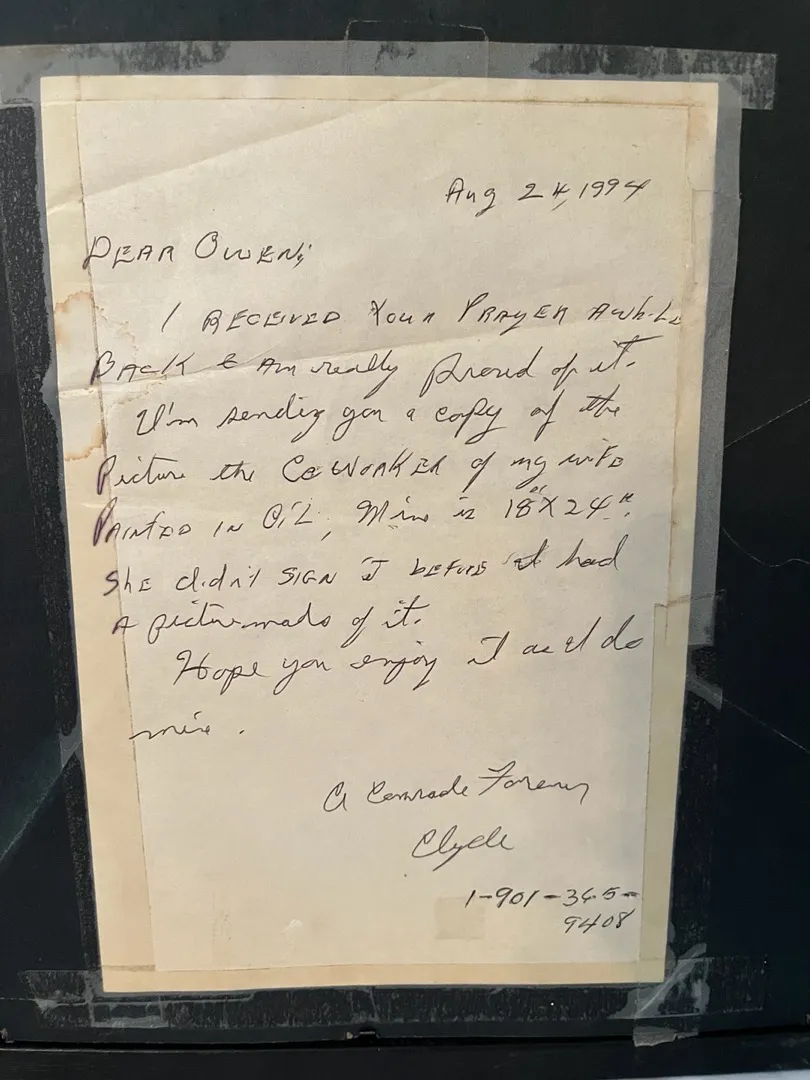 Aug 24, 1994
DEAR OWEN;
I RECEIVED YOUR PRAYER AWhiLE
BACK & Am really proud of it.
I'm sending you a copy of the
Picture the COWORKER of my wife
PAINTED IN OIL, Mine is 18" X 24".
ShE didn't SIGN IT before I had
A picture made of it.
Hope you enjoy it as I do
mine.
A Comrade Forever
Clyde
1-901-365-
9408